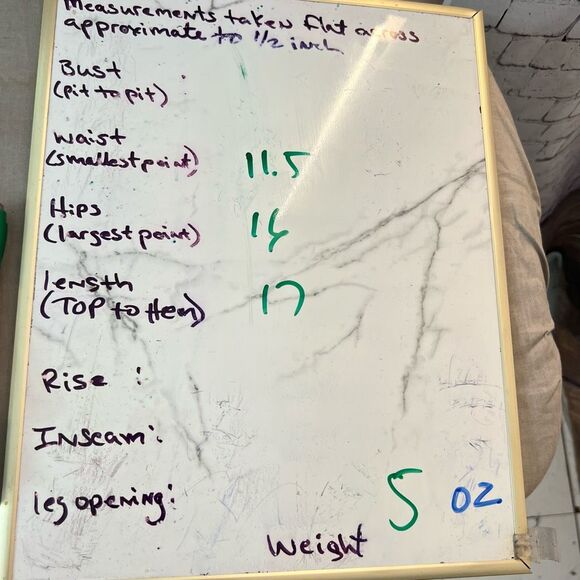 Measurements taken flat across
approximate to 1/2 inch
Bust :
(pit to pit)
waist
(smallest point) 11.5
Hips
(largest point)
length
(TOP to Hem) 17
Rise :
Inseam:
leg opening:
5 oz
Weight